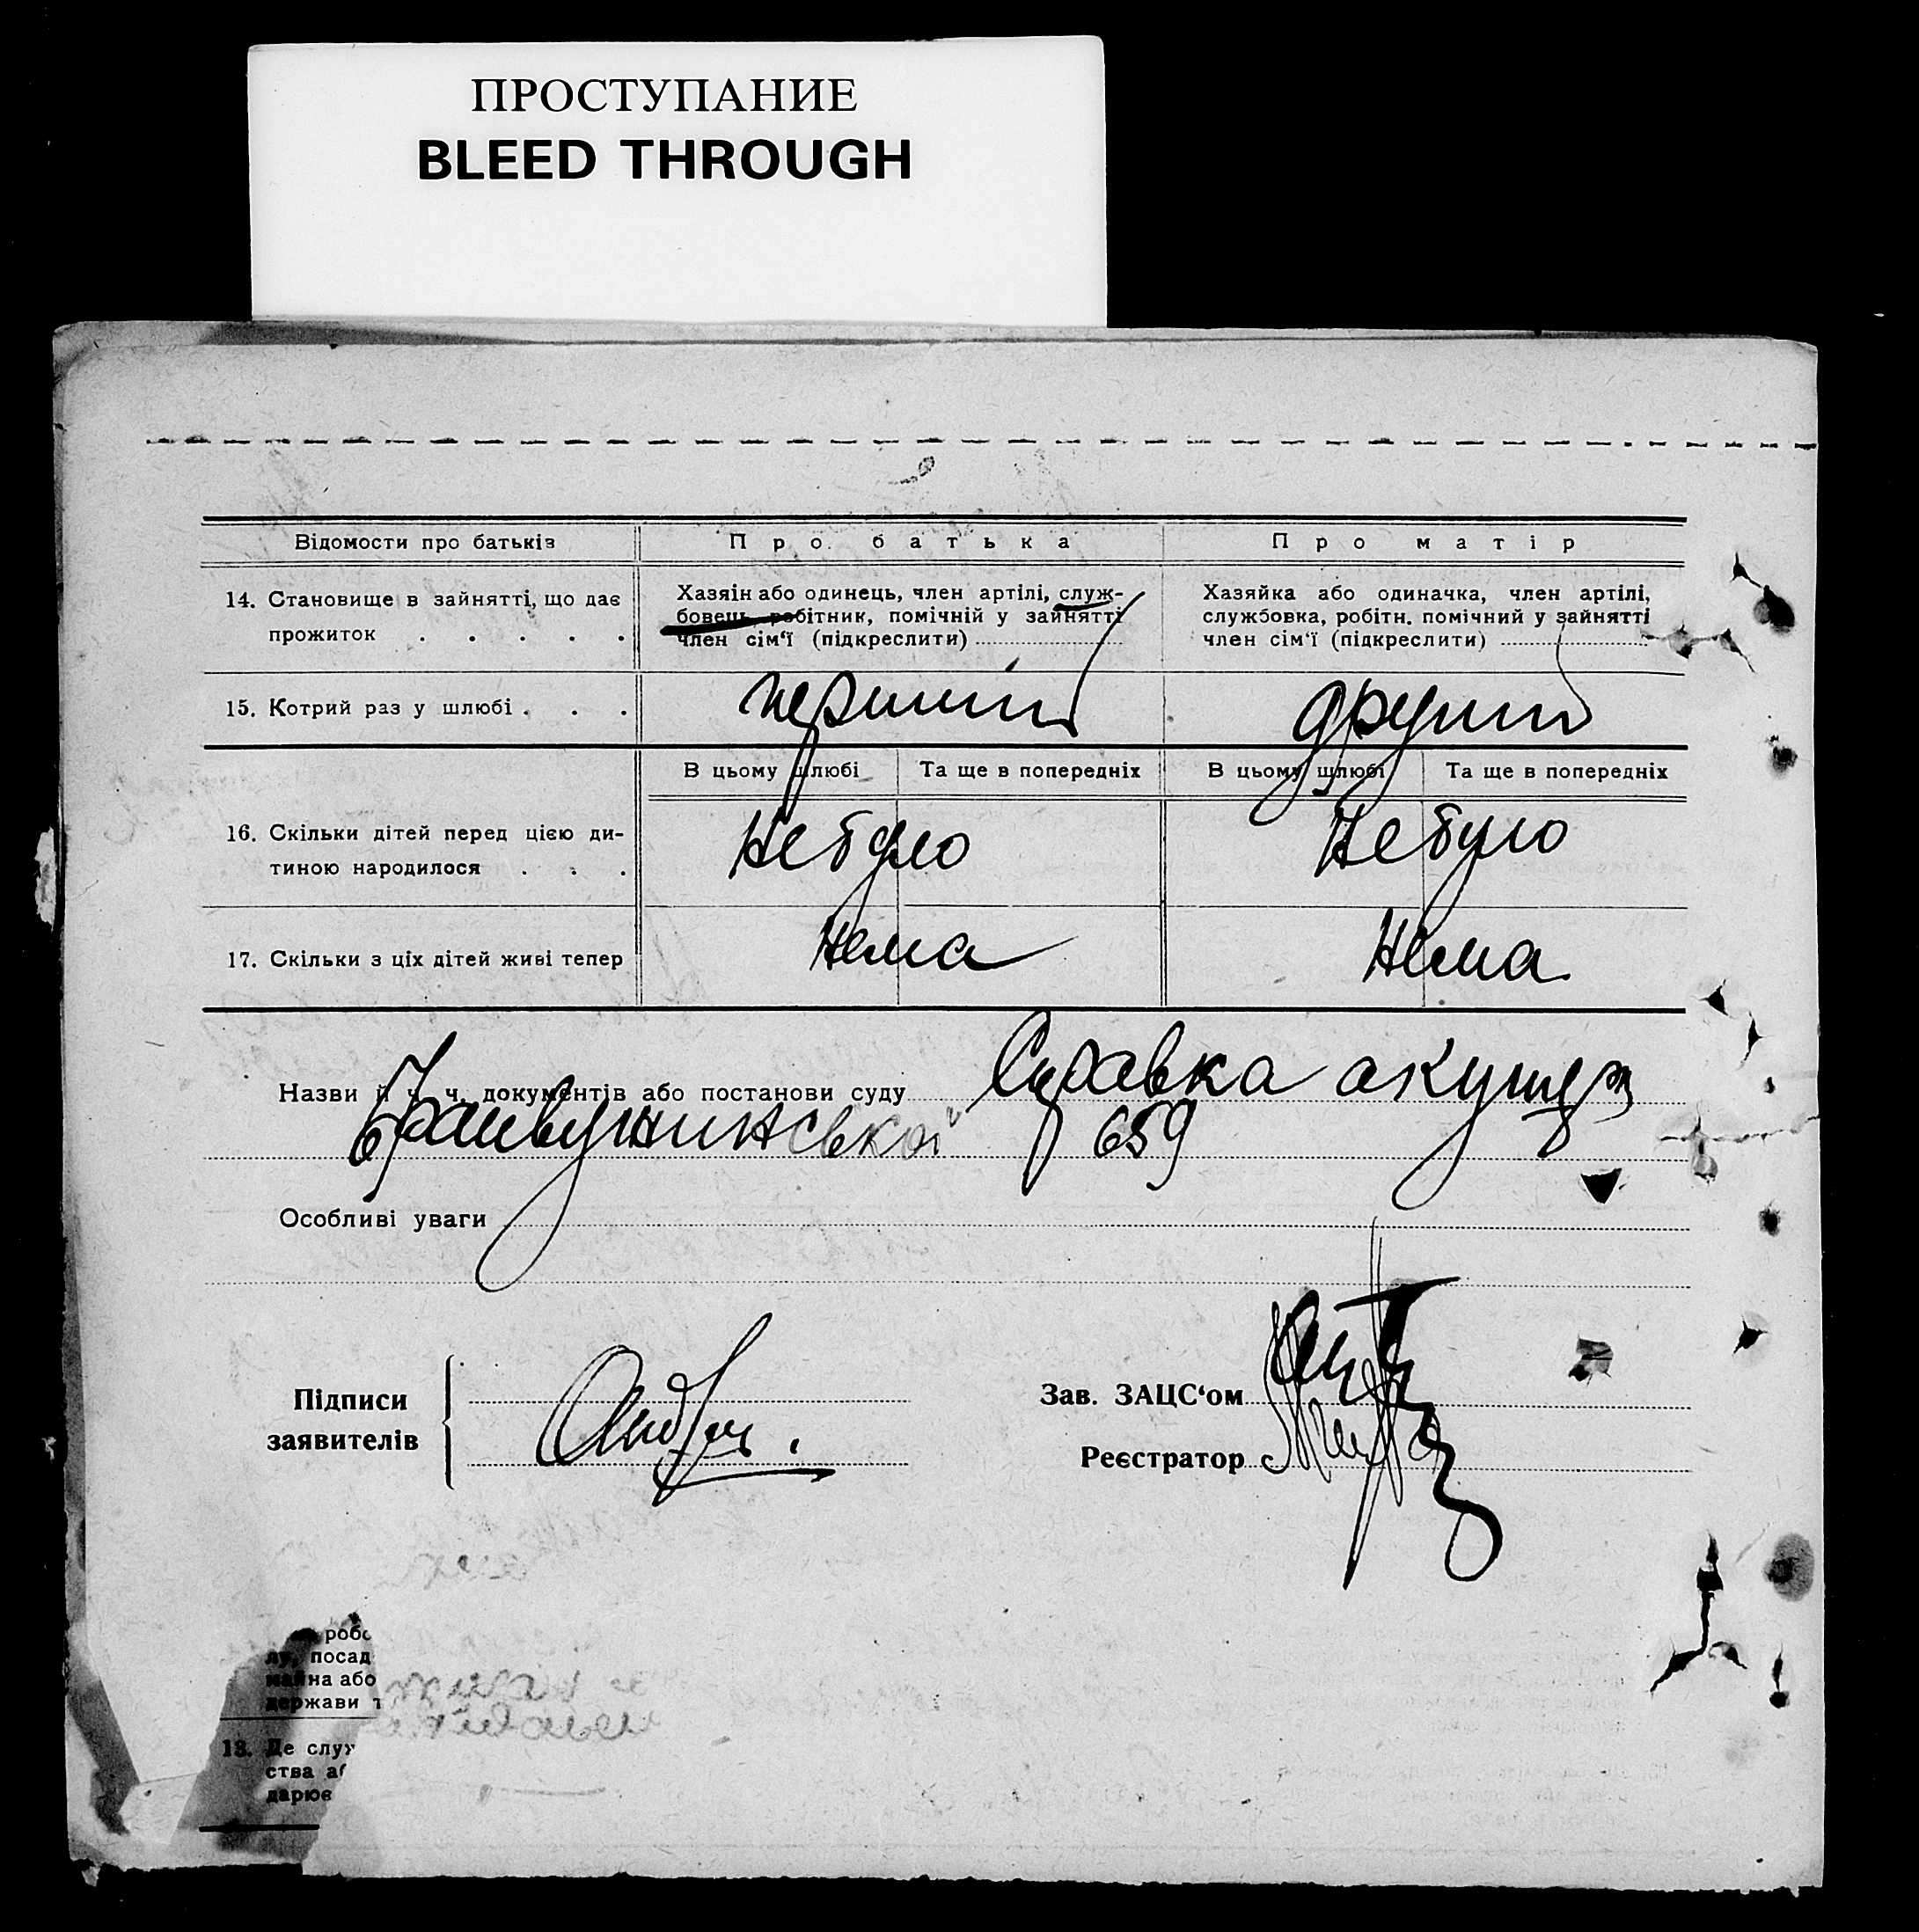 ПРОСТУПАНИЕ
BLEED THROUGH
Відомости про батьків
Про батька
Про матір
14. Становище в зайнятті, що дає
прожиток . . . . .
Хазяін або одинець, член артілі, служ-
бовець, робітник, помічній у зайнятті
член сім‘ї (підкреслити)
Хазяйка або одиначка, член артілі,
службовка, робітн. помічний у зайнятті
член сім‘ї (підкреслити)
15. Котрий раз у шлюбі . . .
перший
другий
В цьому шлюбі
Та ще в попередніх
В цьому шлюбі
Та ще в попередніх
16. Скільки дітей перед цією ди-
тиною народилося . . .
Не було
Не було
17. Скільки з ціх дітей живі тепер
Нема
Нема
Назви й ч. ч. документів або постанови суду Справка акушер
659
Особливі уваги
Підписи
заявителів
Зав. ЗАЦС‘ом
Реєстратор
робо
лу, посад
майна або
держави т
13. Де служ
ства аб
дарює